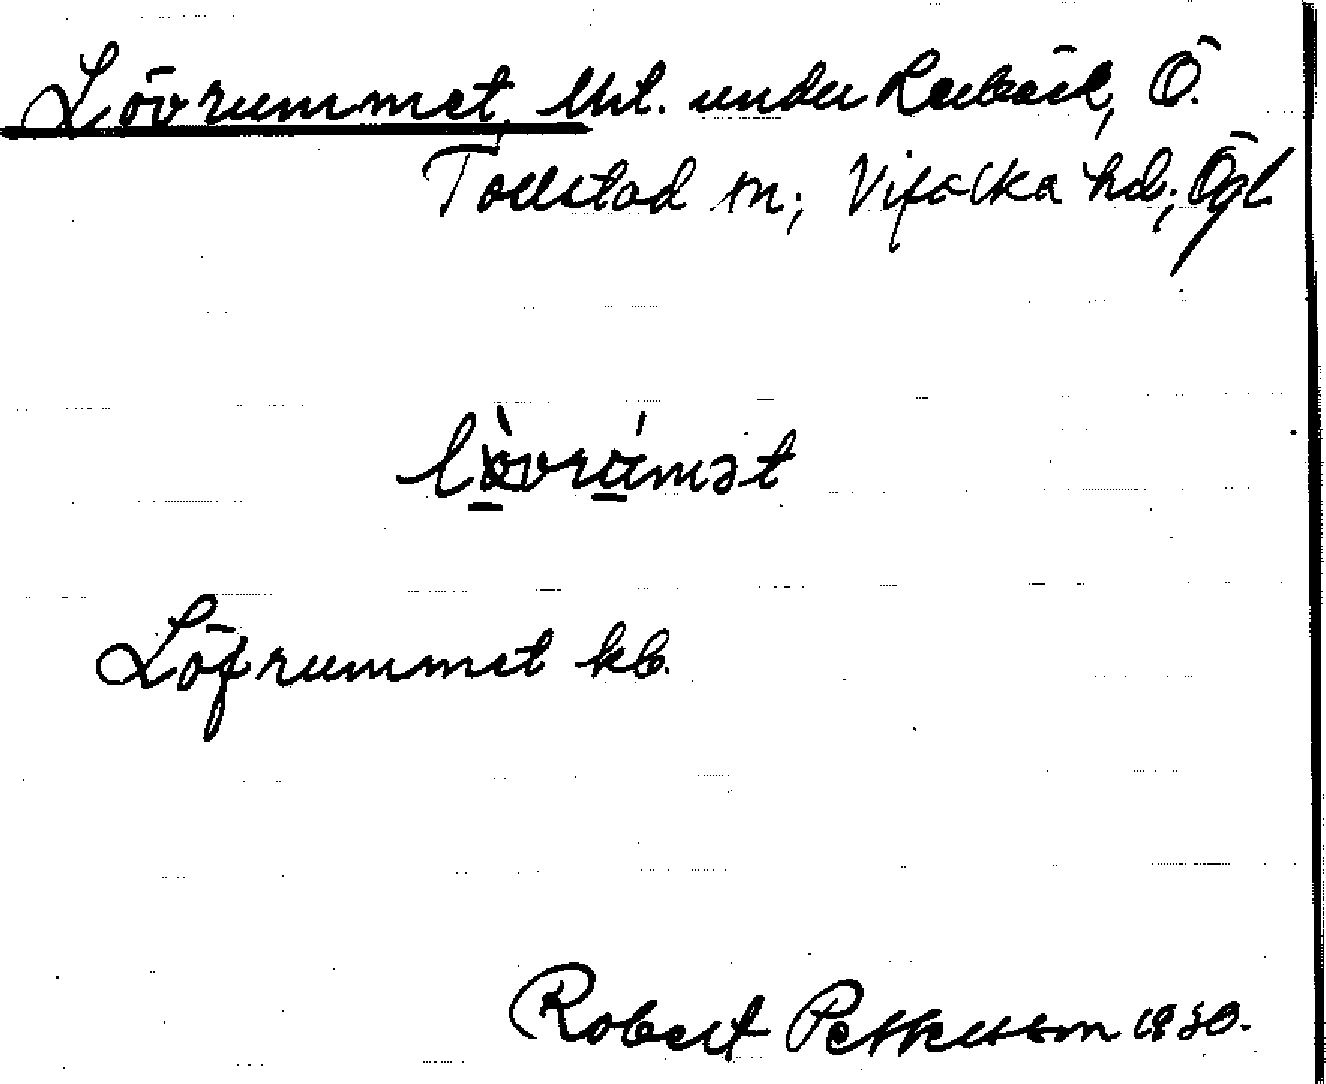 Lövrummet, lht. under Renbäck, Ö.
Tollstad sn; Vifolka hd; Ögl
lòvrúmət
Löfrummet kb.
Robert Pettersson 1930.